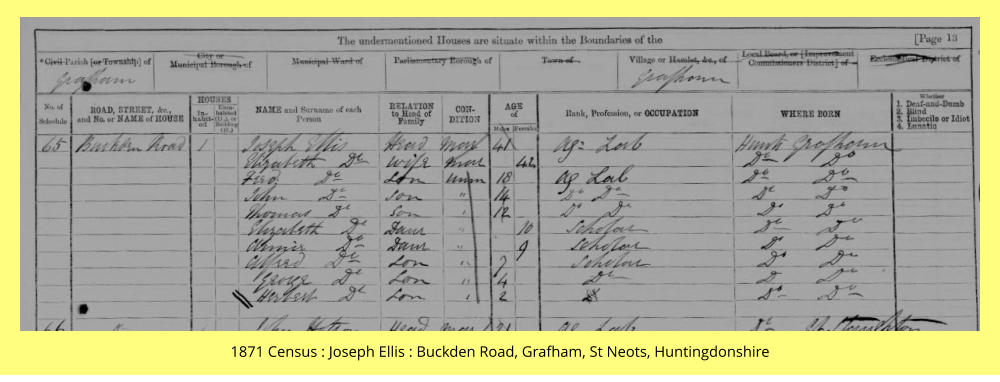 The undermentioned Houses are situate within the Boundaries of the [Page 13
*Civil Parish [or Township] of City or Municipal Borough of Municipal Ward of Parliamentary Borough of Town of Village or Hamlet, &c., of Local Board, or [Improvement Commissioners District] of Ecclesiastical District of
Grafham Grafham
No. of Schedule ROAD, STREET, &c., and No. or NAME of HOUSE HOUSES In-habit-ed Unin-habited (U.), or Building (B.) NAME and Surname of each Person RELATION to Head of Family CON-DITION AGE of Males Females Rank, Profession, or OCCUPATION WHERE BORN Whether 1. Deaf-and-Dumb 2. Blind 3. Imbecile or Idiot 4. Lunatic
65 Buckden Road 1 Joseph Ellis Head Mar 41 Ag. Lab Hunts Grafham
Elizabeth Do Wife Mar 42 Do Do
Fred Do Son Unm 18 Ag Lab Do Do
John Do Son " 14 Do Do Do Do
Thomas Do Son " 12 Do Do Do Do
Elizabeth Do Daur " 10 Scholar Do Do
Do Daur " 9 Scholar Do Do
Alfred Do Son 7 Scholar Do Do
George Do Son " 4 Do Do Do
Herbert Do Son " 2 Do Do
66 " John Head Mar 71 Ag Lab Do
1871 Census : Joseph Ellis : Buckden Road, Grafham, St Neots, Huntingdonshire